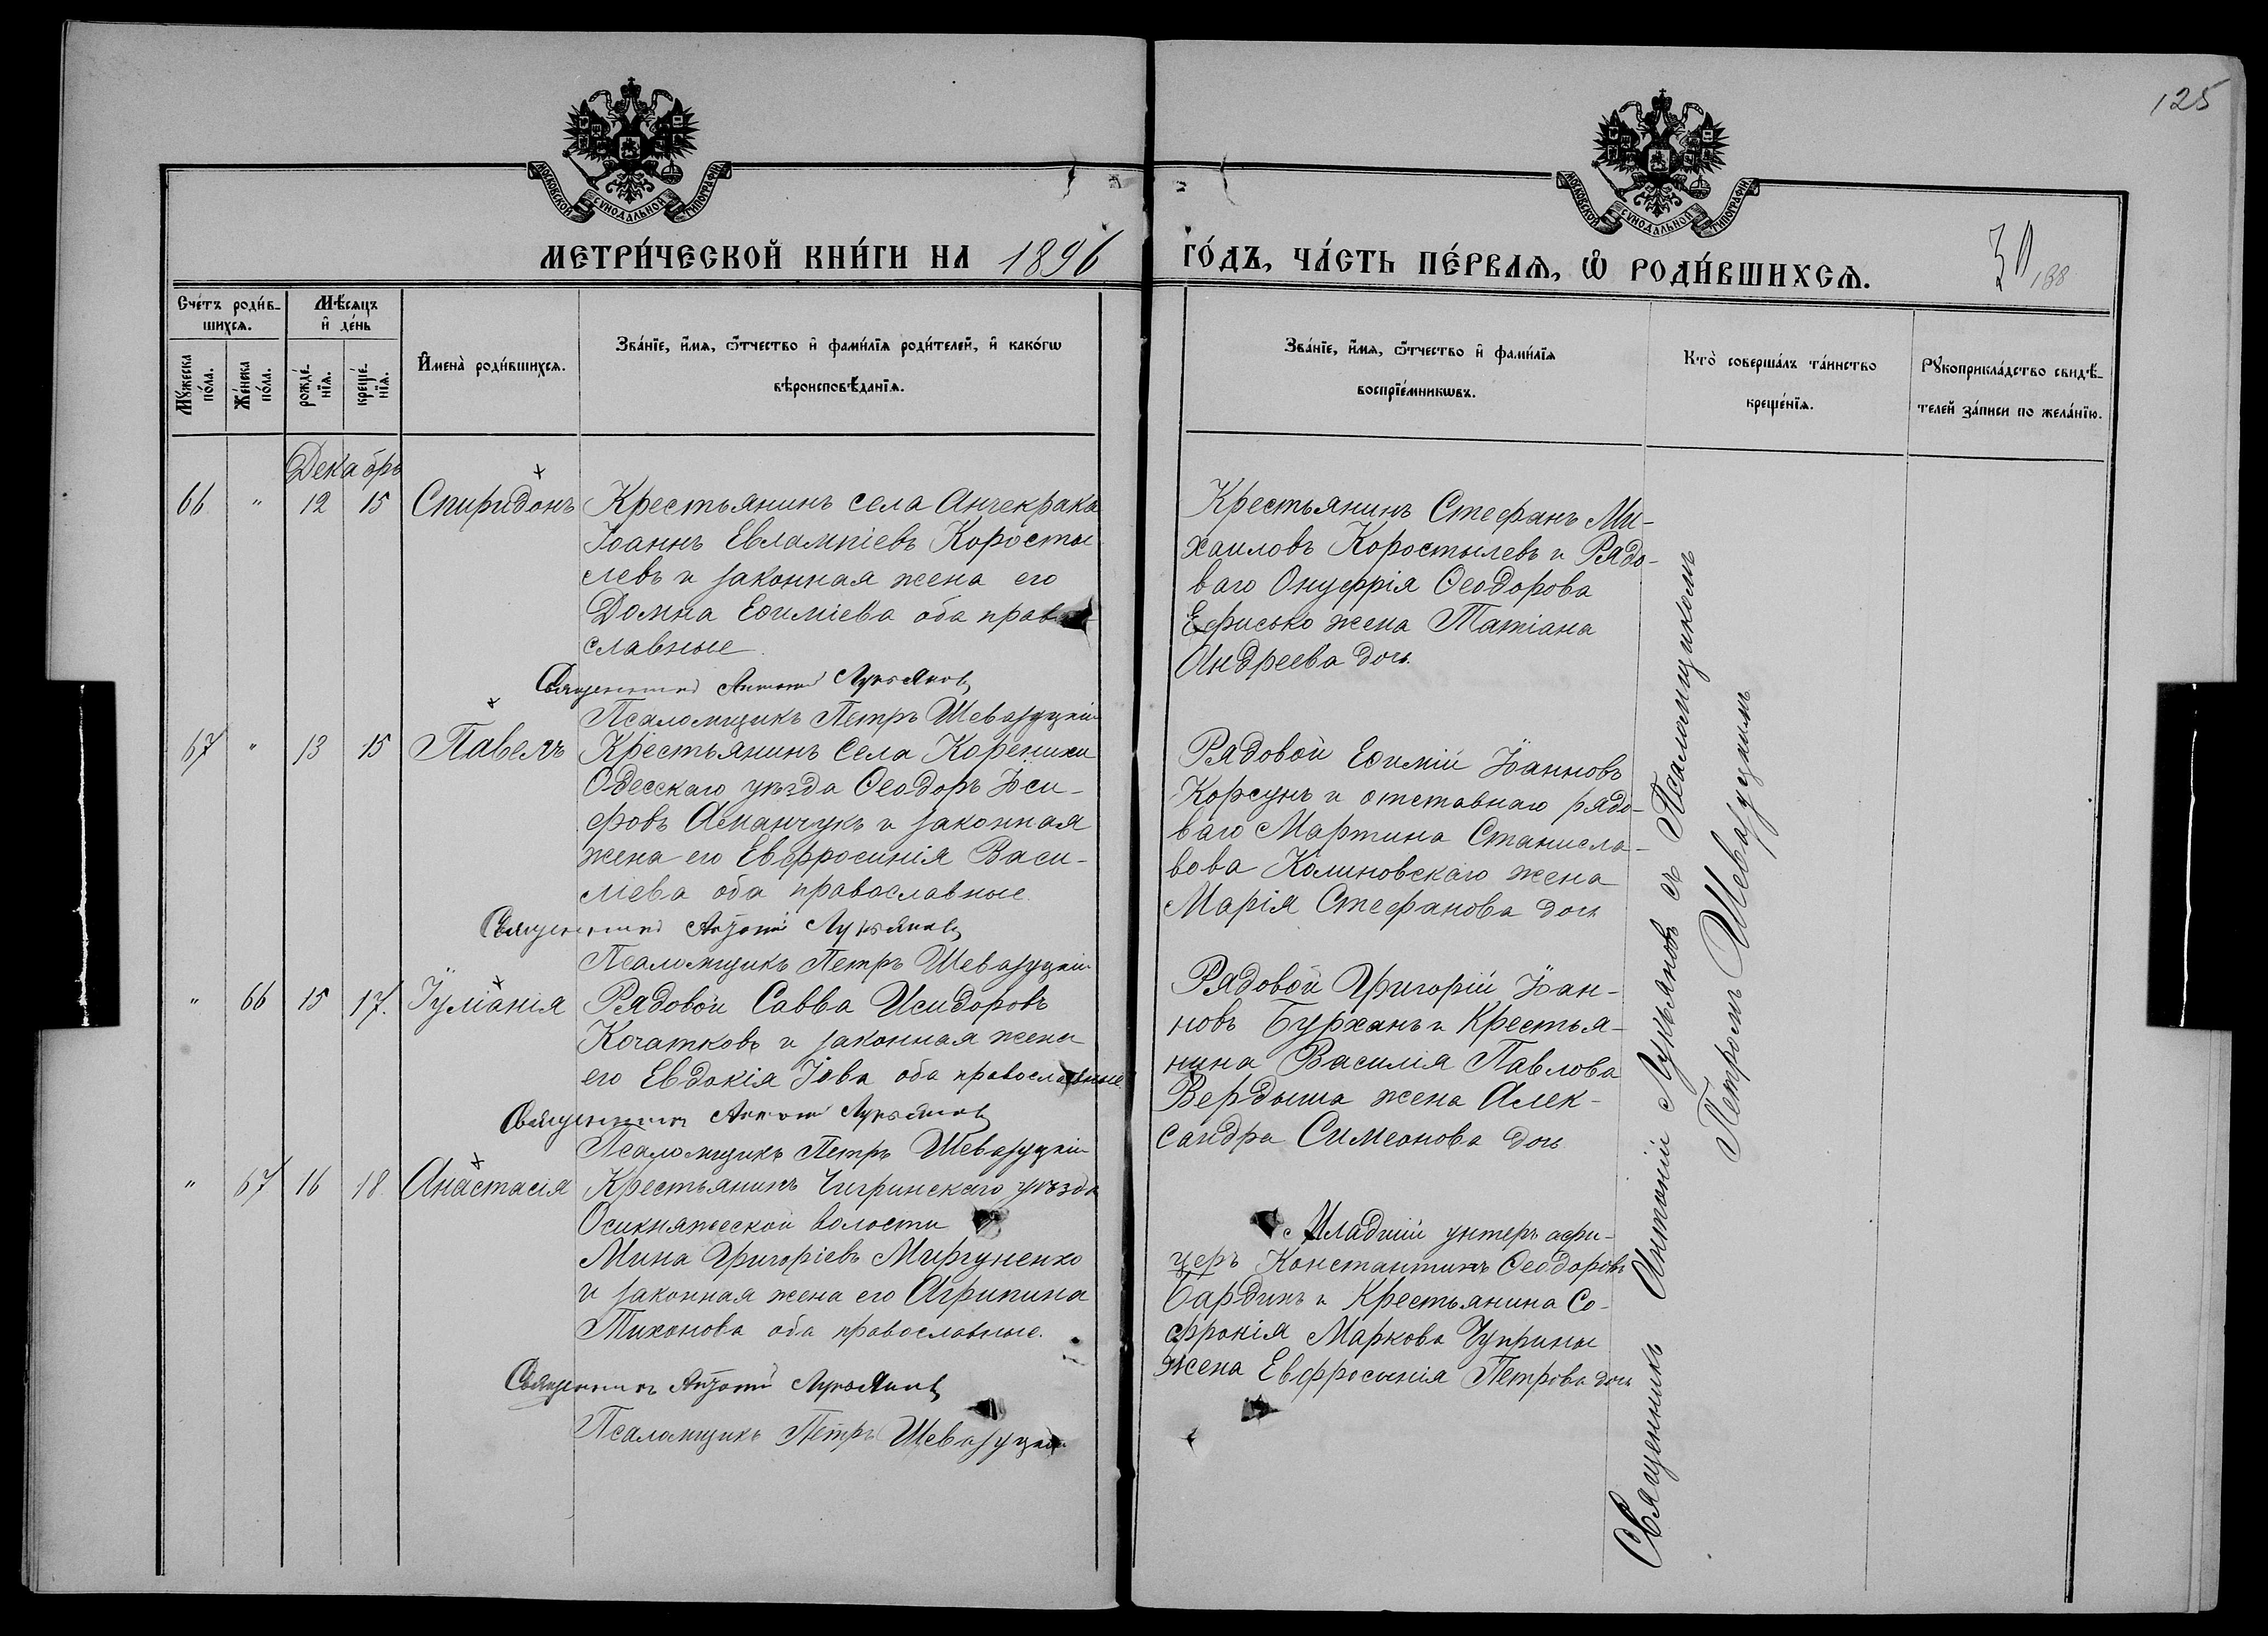 125
МОСКОВСКОЙ СѴНОДАЛЬНОЙ ТИПОГРАФІИ
МОСКОВСКОЙ СѴНОДАЛЬНОЙ ТИПОГРАФІИ
МЕТРИ́ЧЕСКОЙ КНИ́ГИ НА 1896 ГО́ДЪ, ЧА́СТЬ ПЕ́РВАѦ, Ѡ҆ РОДИ́ВШИХСѦ.
30
138
Сче́тъ роди́в-
шихсѧ.
Мѣ́сѧцъ
и҆ де́нь
Мꙋ́жеска
по́ла.
Же́нска
по́ла.
рожде́-
нїѧ.
креще́-
нїѧ.
И҆мена̀ роди́вшихсѧ.
Зва́нїе, и҆́мѧ, ѻ҆́тчество и҆ фами́лїѧ роди́телей, и҆ како́гѡ
вѣроисповѣ́данїѧ.
Зва́нїе, и҆́мѧ, ѻ҆́тчество и҆ фами́лїѧ
воспрїе́мникѡвъ.
Кто̀ соверша́лъ та́инство
креще́нїѧ.
Рꙋкоприкла́дство свидѣ́-
телей за́писи по жела́нїю.
Декабрь
66 " 12 15 Спиридонъ
Крестьянинъ села Анчекрака
Іоаннъ Евлампіевъ Коросты-
левъ и законная жена его
Домна Евѳиміева оба право-
славные.
Священникъ Антоній Лукьяновъ
Псаломщикъ Петръ Шевазуцкій
Крестьянинъ Стефанъ Ми-
хаиловъ Коростылевъ и Рядо-
ваго Онуфрія Ѳеодорова
Ефисько жена Татіана
Андреева дочь.
67 " 13 15 Павелъ
Крестьянинъ села Коренихи
Одесскаго уѣзда Ѳеодоръ Іоси-
фовъ Асманчукъ и законная
жена его Евфросинія Васи-
ліева оба православные.
Священникъ Антоній Лукьяновъ
Псаломщикъ Петръ Шевазуцкій
Рядовой Евѳимій Іоанновъ
Корсунъ и отставнаго рядо-
ваго Мартина Станисла-
вова Калиновскаго жена
Марія Стефанова дочь
" 66 15 17. Іуліанія
Рядовой Савва Исидоровъ
Кочатковъ и законная жена
его Евдокія Іова оба православные
Священникъ Антоній Лукьяновъ
Псаломщикъ Петръ Шевазуцкій
Рядовой Григорій Іоан-
новъ Бурханъ и Крестья-
нина Василія Павлова
Вердыша жена Алек-
сандра Симеонова дочь
" 67 16 18. Анастасія
Крестьянинъ Чигринскаго уѣзда
Осикняжеской волости
Мина Григоріевъ Миргуненко
и законная жена его Агрипина
Тихонова оба православные.
Священникъ Антоній Лукьяновъ
Псаломщикъ Петръ Шевазуцкій
Младшій унтеръ офи-
церъ Константинъ Ѳеодоровъ
Бардинъ и Крестьянина Со-
фронія Маркова Чуприны
жена Евфросинія Петрова дочь
Священникъ Антоній Лукьяновъ съ Псаломщикомъ
Петромъ Шевазуцкимъ